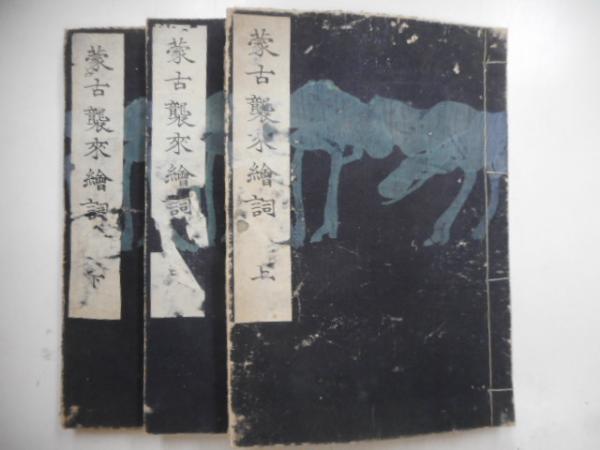 蒙古襲来繪詞 上
蒙古襲來繪詞
蒙古襲來繪詞 下